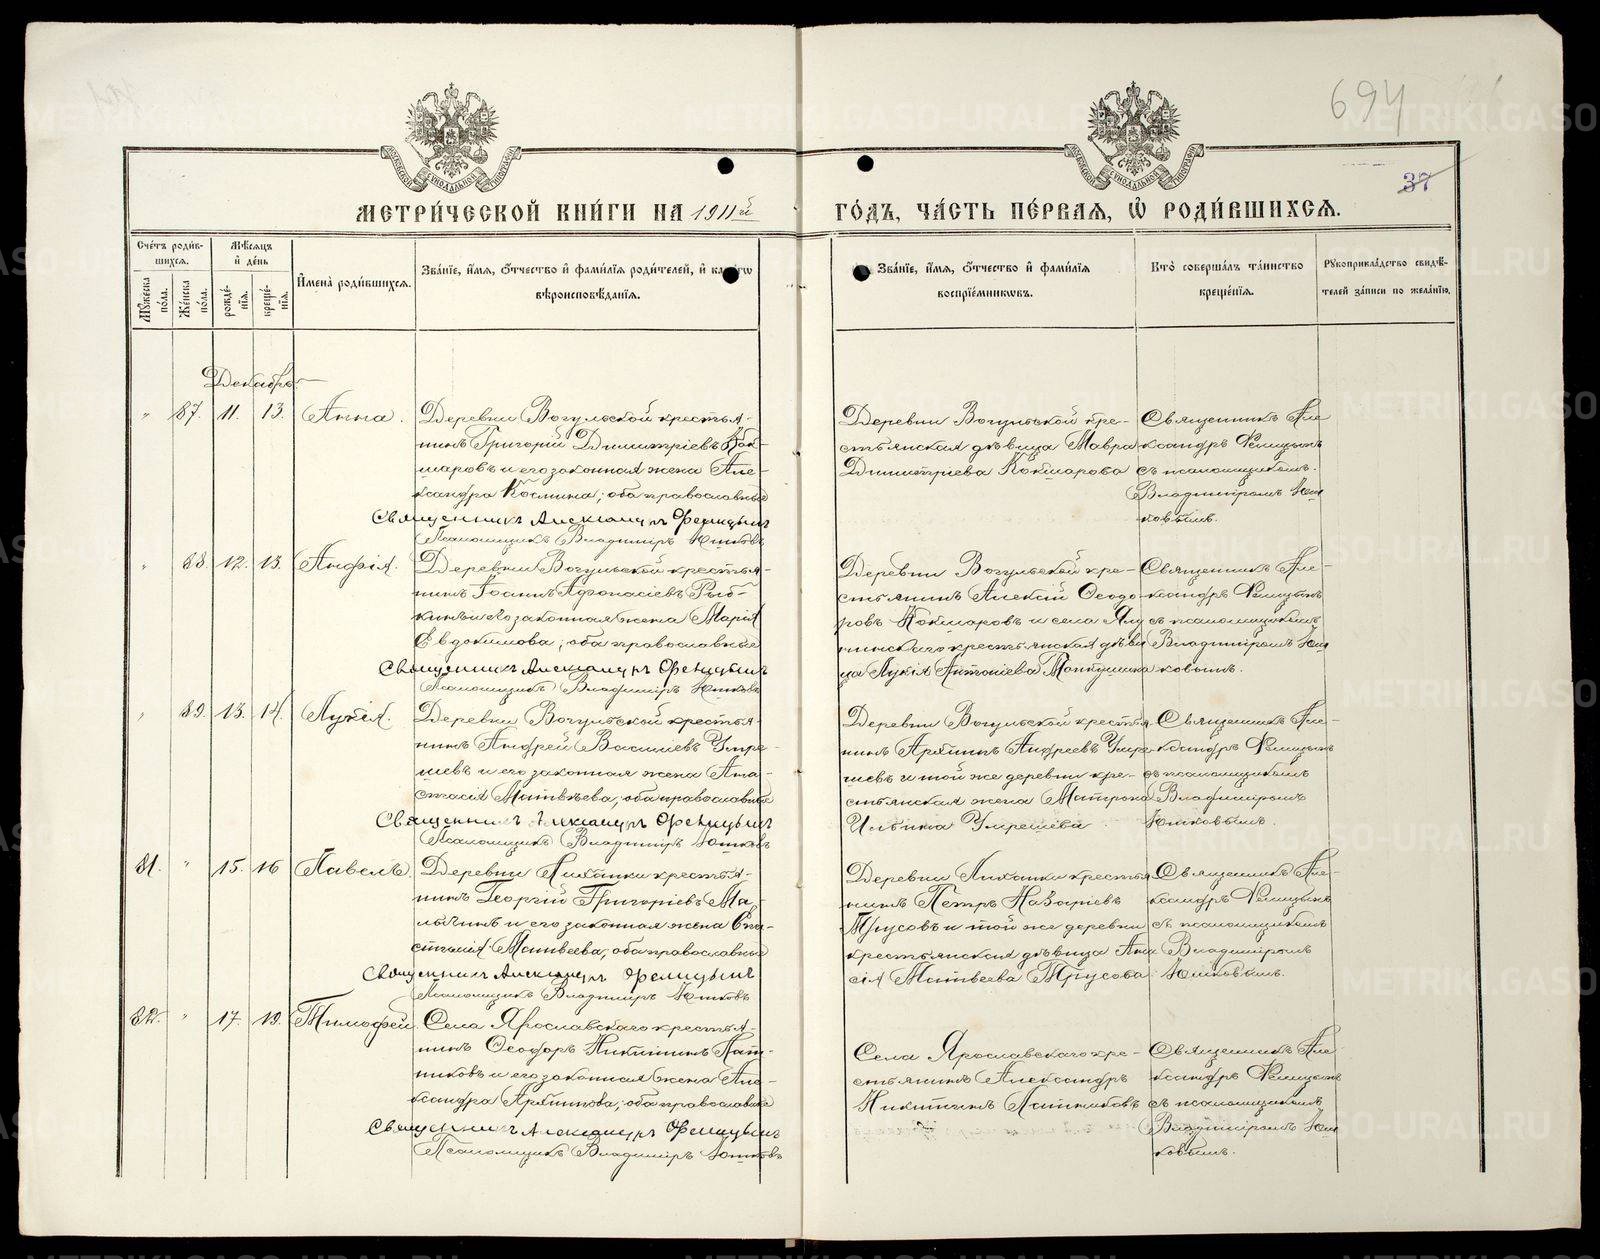 694
37
МЕТРИ́ЧЕСКОЙ КНИ́ГИ НА 1911й ГО́ДЪ, ЧА́СТЬ ПЕ́РВАЯ, Ѡ РОДИ́ВШИХСЯ.
Сче́тъ роди́вшихся.
Мѣ́сяцъ и́ де́нь
Му́жеска по́ла.
Же́нска по́ла.
рожде́нїя.
креще́нїя.
И҆мена̀ роди́вшихся.
Зва́нїе, и҆́мя, о҆́тчество и҆ фами́лїя роди́телей, и҆ како́гѡ
вѣроисповѣ́данїя.
Зва́нїе, и҆́мя, о҆́тчество и҆ фами́лїя
воспрїе́мникѡвъ.
Кто̀ соверша́лъ та́инство
креще́нїя.
Рукоприкла́дство свидѣ́-
телей за́писи по жела́нїю.
Декабрь
" 87. 11. 13. Анна.
Деревни Вогульской крестья-
нинъ Григорій Димитріевъ Кок-
шаровъ и его законная жена Але-
ксандра Космина, оба православные
Священникъ Александръ Фелицынъ
Псаломщикъ Владиміръ Юшковъ
Деревни Вогульской кре-
стьянская дѣвица Мавра
Димитріева Кокшарова
Священникъ Але-
ксандръ Фелицынъ
съ псаломщикомъ
Владиміромъ Юш-
ковымъ.
" 88. 12. 13. Анфія.
Деревни Вогульской крестья-
нинъ Іоаннъ Афонасіевъ Рыб-
кинъ и его законная жена Марія
Евдокимова, оба православные
Священникъ Александръ Фелицынъ
Псаломщикъ Владиміръ Юшковъ
Деревни Вогульской кре-
стьянинъ Алексій Ѳеодо-
ровъ Кокшаровъ и села Ялу-
нинскаго крестьянская дѣви-
ца Лукія Антоніева
Священникъ Але-
ксандръ Фелицынъ
съ псаломщикомъ
Владиміромъ Юш-
ковымъ.
" 89. 13. 14. Лукія.
Деревни Вогульской крестья-
нинъ Андрей Василіевъ Упре-
шевъ и его законная жена Ана-
стасія Матвѣева, оба православные
Священникъ Александръ Фелицынъ
Псаломщикъ Владиміръ Юшковъ
Деревни Вогульской крестья-
нинъ Андреевъ
и той же деревни кре-
стьянская жена Матрона
Ильина
Священникъ Але-
ксандръ Фелицынъ
съ псаломщикомъ
Владиміромъ
Юшковымъ.
81. " 15. 16 Павелъ.
Деревни крестья-
нинъ Георгій Григоріевъ Ма-
лыгинъ и его законная жена
Матвеева, оба православные
Священникъ Александръ Фелицынъ
Псаломщикъ Владиміръ Юшковъ
Деревни крестья-
нинъ Петръ Назаріевъ
Трусовъ и той же деревни
крестьянская дѣвица Ана-
сія Матвеева Трусова
Священникъ Але-
ксандръ Фелицынъ
съ псаломщикомъ
Владиміромъ
Юшковымъ.
82. " 17. 19. Тимофей.
Села Ярославскаго крестья-
нинъ Ѳеодоръ Никитинъ Лат-
никовъ и его законная жена Але-
ксандра, оба православные
Священникъ Александръ Фелицынъ
Псаломщикъ Владиміръ Юшковъ
Села Ярославскаго кре-
стьянинъ Александръ
Никитинъ Латниковъ
Священникъ Але-
ксандръ Фелицынъ
съ псаломщикомъ
Владиміромъ Юш-
ковымъ.
METRIKI.GASO-URAL.RU